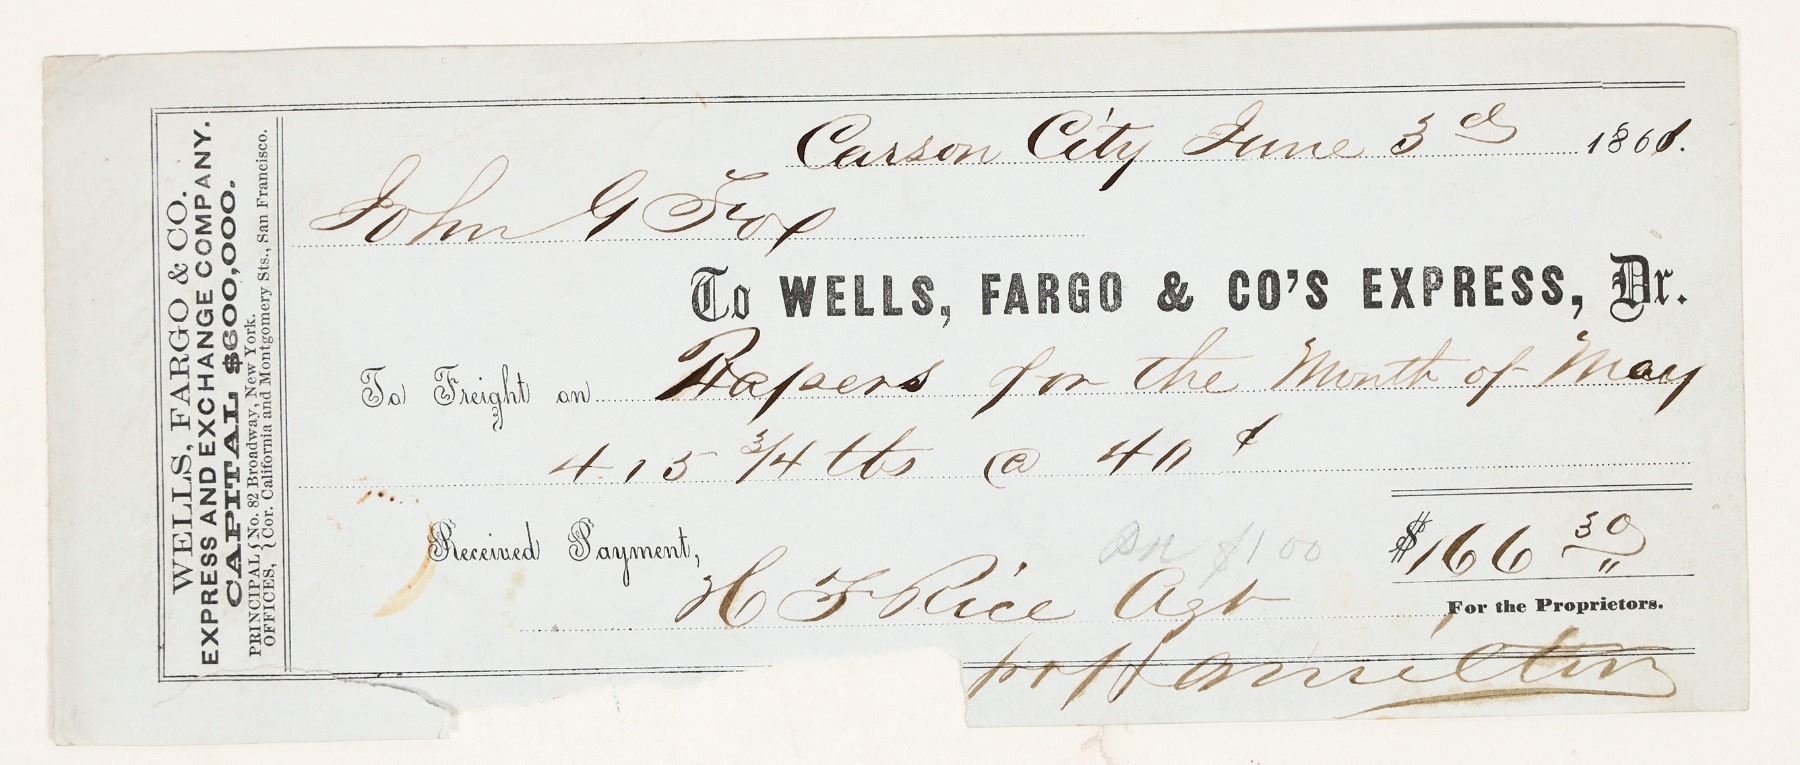 WELLS, FARGO & CO.
EXPRESS AND EXCHANGE COMPANY.
CAPITAL $600,000.
PRINCIPAL OFFICES, { No. 82 Broadway, New York.
Cor. California and Montgomery Sts., San Francisco.
Carson City June 3d 1861.
John G Fox
To WELLS, FARGO & CO'S EXPRESS, Dr.
To Freight on Papers for the Month of May
415 3/4 lbs @ 40 ¢
$166 30
Received Payment,
$1 00
H F Rice Agt
For the Proprietors.
pr Hamilton